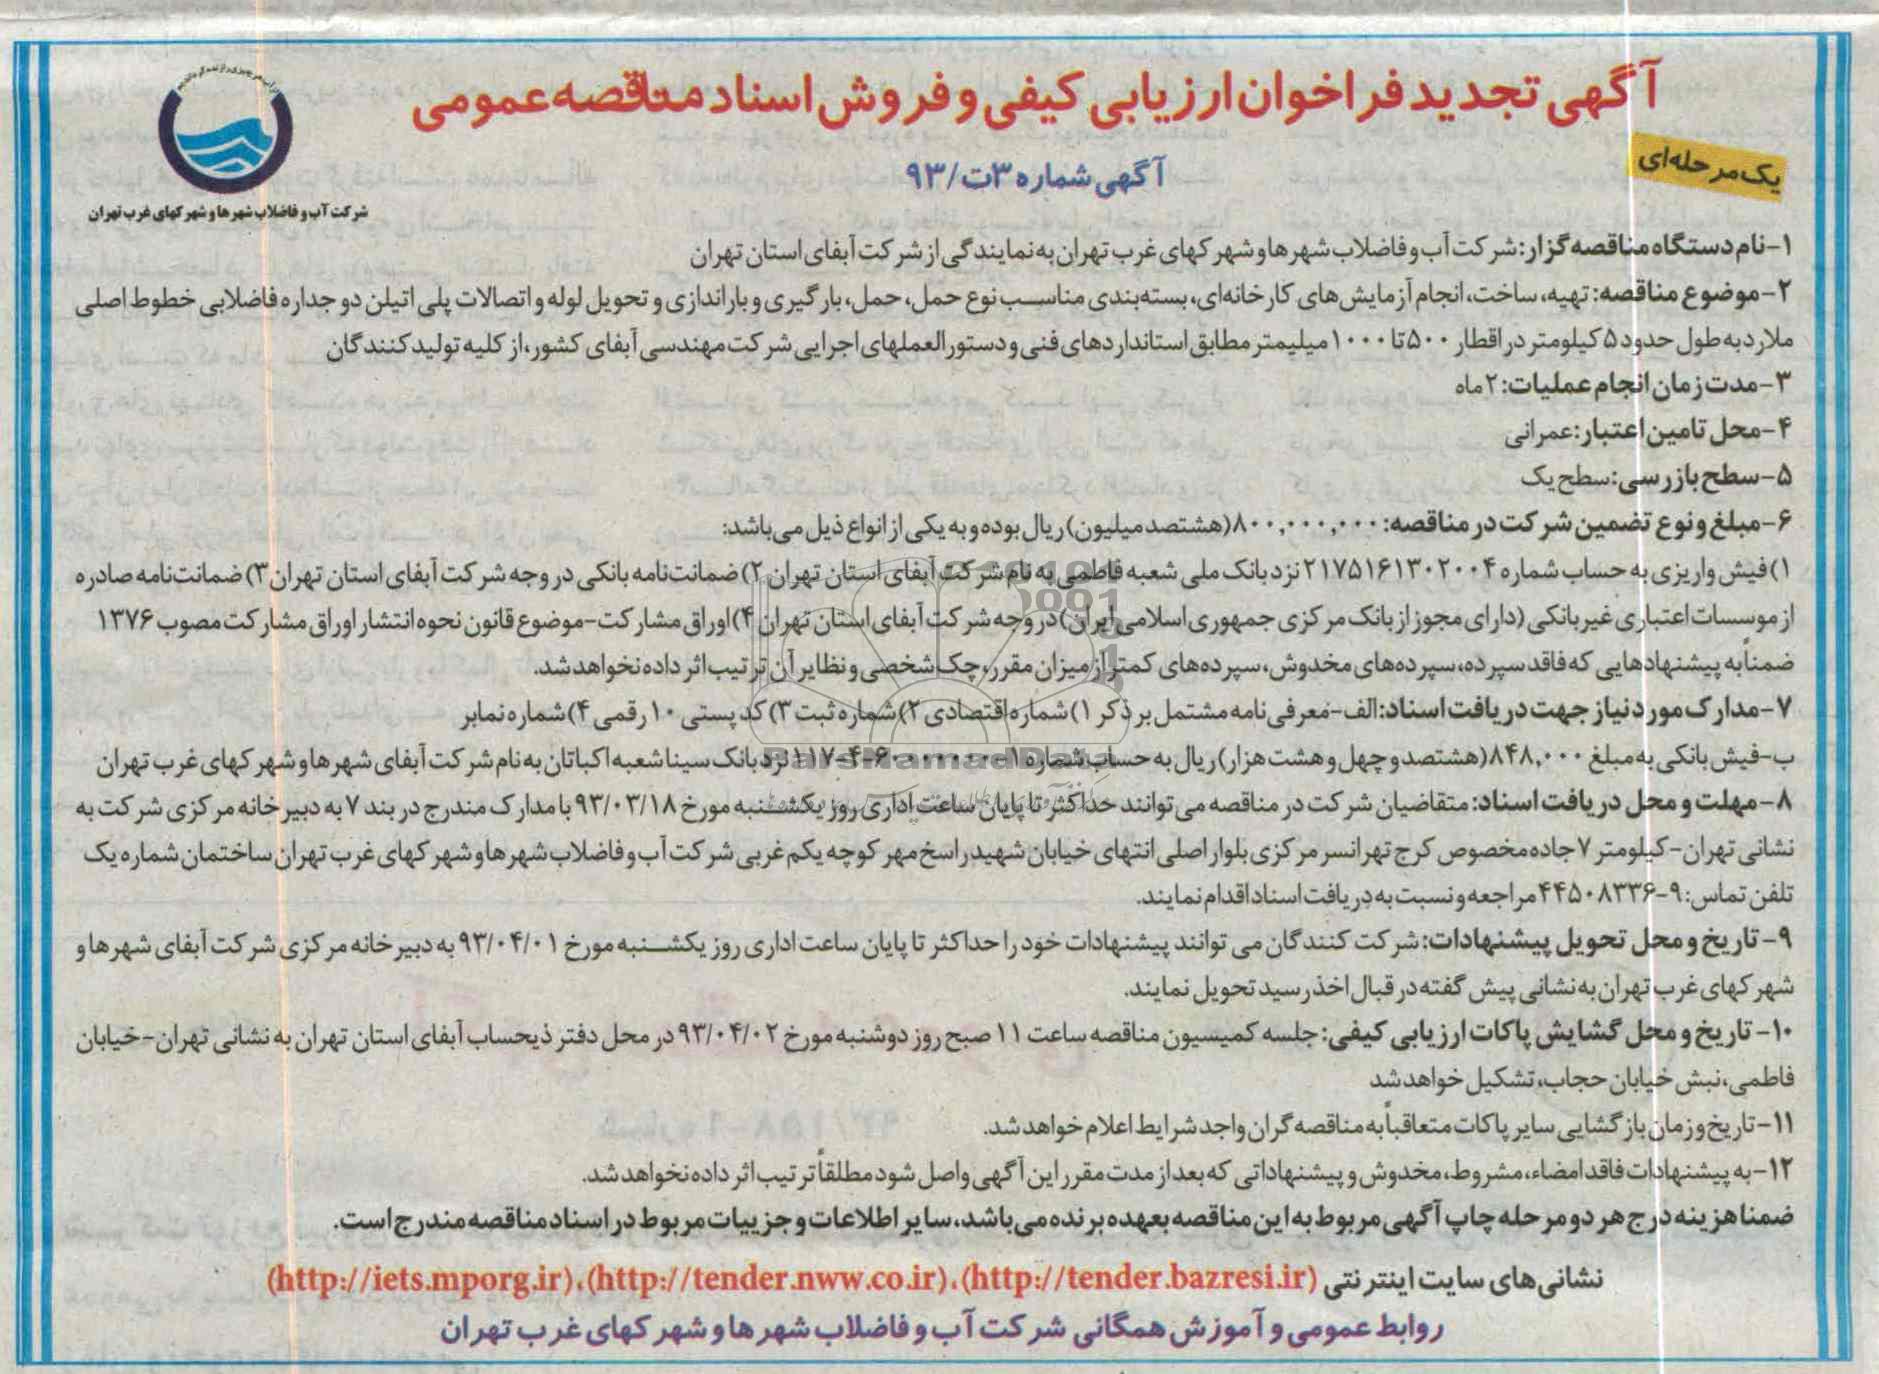 آگهی تجدید فراخوان ارزیابی کیفی و فروش اسناد مناقصه عمومی
یک مرحله‌ای
آگهی شماره ۳ت/۹۳
شرکت آب و فاضلاب شهرها و شهرکهای غرب تهران
۱-نام دستگاه مناقصه گزار: شرکت آب و فاضلاب شهرها و شهرکهای غرب تهران به نمایندگی از شرکت آبفای استان تهران
۲-موضوع مناقصه: تهیه، ساخت، انجام آزمایش‌های کارخانه‌ای، بسته‌بندی مناسب نوع حمل، حمل، بارگیری و باراندازی و تحویل لوله و اتصالات پلی اتیلن دو جداره فاضلابی خطوط اصلی
ملارد به طول حدود ۵ کیلومتر در اقطار ۵۰۰ تا ۱۰۰۰ میلیمتر مطابق استانداردهای فنی و دستورالعملهای اجرایی شرکت مهندسی آبفای کشور، از کلیه تولیدکنندگان
۳-مدت زمان انجام عملیات: ۲ ماه
۴-محل تامین اعتبار: عمرانی
۵-سطح بازرسی: سطح یک
۶-مبلغ و نوع تضمین شرکت در مناقصه: ۸۰۰,۰۰۰,۰۰۰ (هشتصد میلیون) ریال بوده و به یکی از انواع ذیل می‌باشد:
۱) فیش واریزی به حساب شماره ۲۱۷۵۱۶۱۳۰۲۰۰۴ نزد بانک ملی شعبه فاطمی به نام شرکت آبفای استان تهران ۲) ضمانت‌نامه بانکی در وجه شرکت آبفای استان تهران ۳) ضمانت‌نامه صادره
از موسسات اعتباری غیر بانکی (دارای مجوز از بانک مرکزی جمهوری اسلامی ایران) در وجه شرکت آبفای استان تهران ۴) اوراق مشارکت-موضوع قانون نحوه انتشار اوراق مشارکت مصوب ۱۳۷۶
ضمناً به پیشنهادهایی که فاقد سپرده، سپرده‌های مخدوش، سپرده‌های کمتر از میزان مقرر، چک شخصی و نظایر آن ترتیب اثر داده نخواهد شد.
۷-مدارک مورد نیاز جهت دریافت اسناد: الف-معرفی نامه مشتمل بر ذکر ۱) شماره اقتصادی ۲) شماره ثبت ۳) کد پستی ۱۰ رقمی ۴) شماره نمابر
ب-فیش بانکی به مبلغ ۸۴۸,۰۰۰ (هشتصد و چهل و هشت هزار) ریال به حساب شماره نزد بانک سینا شعبه اکباتان به نام شرکت آبفای شهرها و شهرکهای غرب تهران
۸-مهلت و محل دریافت اسناد: متقاضیان شرکت در مناقصه می‌توانند حداکثر تا پایان ساعت اداری روز یکشنبه مورخ ۹۳/۰۳/۱۸ با مدارک مندرج در بند ۷ به دبیرخانه مرکزی شرکت به
نشانی تهران-کیلومتر ۷ جاده مخصوص کرج تهرانسر مرکزی بلوار اصلی انتهای خیابان شهید راسخ مهر کوچه یکم غربی شرکت آب و فاضلاب شهرها و شهرکهای غرب تهران ساختمان شماره یک
تلفن تماس: ۹-۴۴۵۰۸۳۳۶ مراجعه و نسبت به دریافت اسناد اقدام نمایند.
۹- تاریخ و محل تحویل پیشنهادات: شرکت کنندگان می توانند پیشنهادات خود را حداکثر تا پایان ساعت اداری روز یکشنبه مورخ ۹۳/۰۴/۰۱ به دبیرخانه مرکزی شرکت آبفای شهرها و
شهرکهای غرب تهران به نشانی پیش گفته در قبال اخذ رسید تحویل نمایند.
۱۰- تاریخ و محل گشایش پاکات ارزیابی کیفی: جلسه کمیسیون مناقصه ساعت ۱۱ صبح روز دوشنبه مورخ ۹۳/۰۴/۰۲ در محل دفتر ذیحساب آبفای استان تهران به نشانی تهران-خیابان
فاطمی، نبش خیابان حجاب، تشکیل خواهد شد
۱۱-تاریخ و زمان بازگشایی سایر پاکات متعاقباً به مناقصه گران واجد شرایط اعلام خواهد شد.
۱۲-به پیشنهادات فاقد امضاء، مشروط، مخدوش و پیشنهاداتی که بعد از مدت مقرر این آگهی واصل شود مطلقاً ترتیب اثر داده نخواهد شد.
ضمنا هزینه درج هر دو مرحله چاپ آگهی مربوط به این مناقصه بعهده برنده می‌باشد، سایر اطلاعات و جزییات مربوط در اسناد مناقصه مندرج است.
نشانی‌های سایت اینترنتی (http://tender.bazresi.ir)، (http://tender.nww.co.ir)، (http://iets.mporg.ir)
روابط عمومی و آموزش همگانی شرکت آب و فاضلاب شهرها و شهرکهای غرب تهران
ParsNamadData